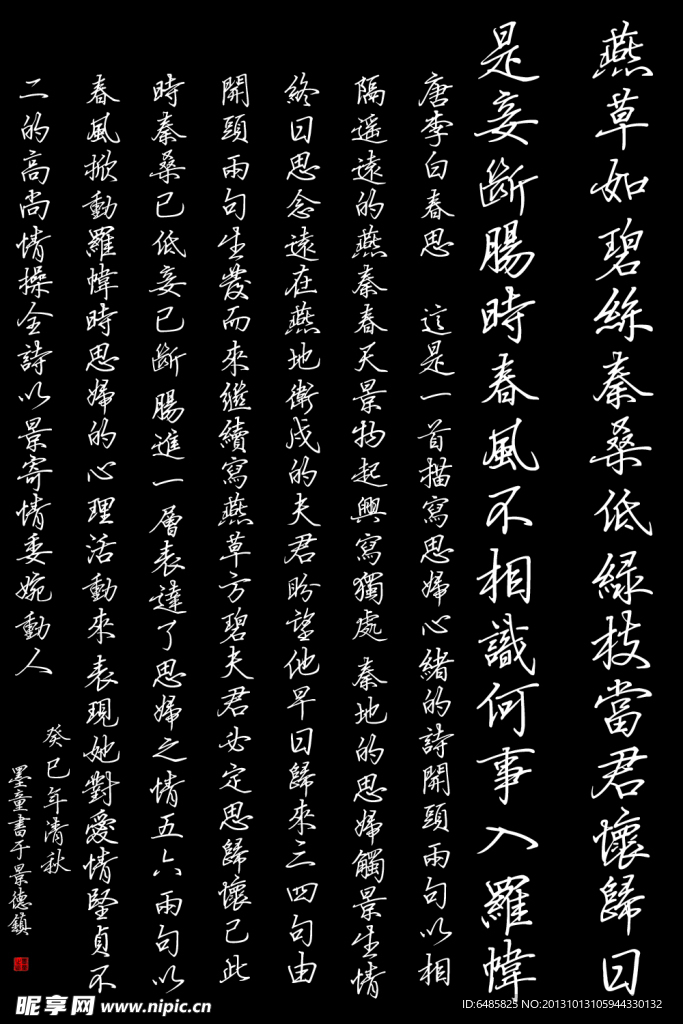 燕草如碧絲秦桑低緑枝當君懷歸日
是妾斷腸時春風不相識何事入羅幃
唐李白春思 這是一首描寫思婦心緒的詩開頭兩句以相
隔遥遠的燕秦春天景物起興寫獨處秦地的思婦觸景生情
終日思念遠在燕地衛戍的夫君盼望他早日歸來三四句由
開頭兩句生發而來继續寫燕草方碧夫君必定思歸懷已此
時秦桑已低妾已斷腸進一層表達了思婦之情五六兩句以
春風掀動羅幃時思婦的心理活動來表現她對愛情堅貞不
二的高尚情操全詩以景寄情委婉動人
癸巳年清秋
墨童書于景德鎮
昵享网 www.nipic.cn
ID:6485825 NO:20131013105944330132